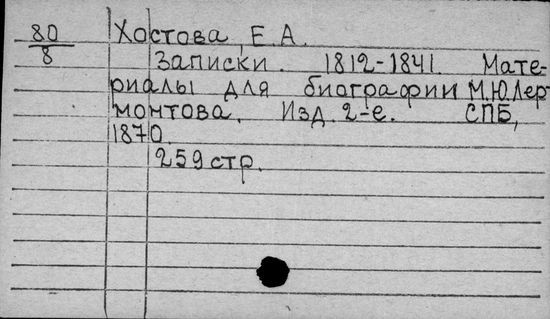 80 Хостова, Е.А.
8 Записки. 1812-1841. Мате-
риалы для биографии М.Ю.Лер-
монтова. Изд. 2-е. СПБ,
1870.
259 стр.